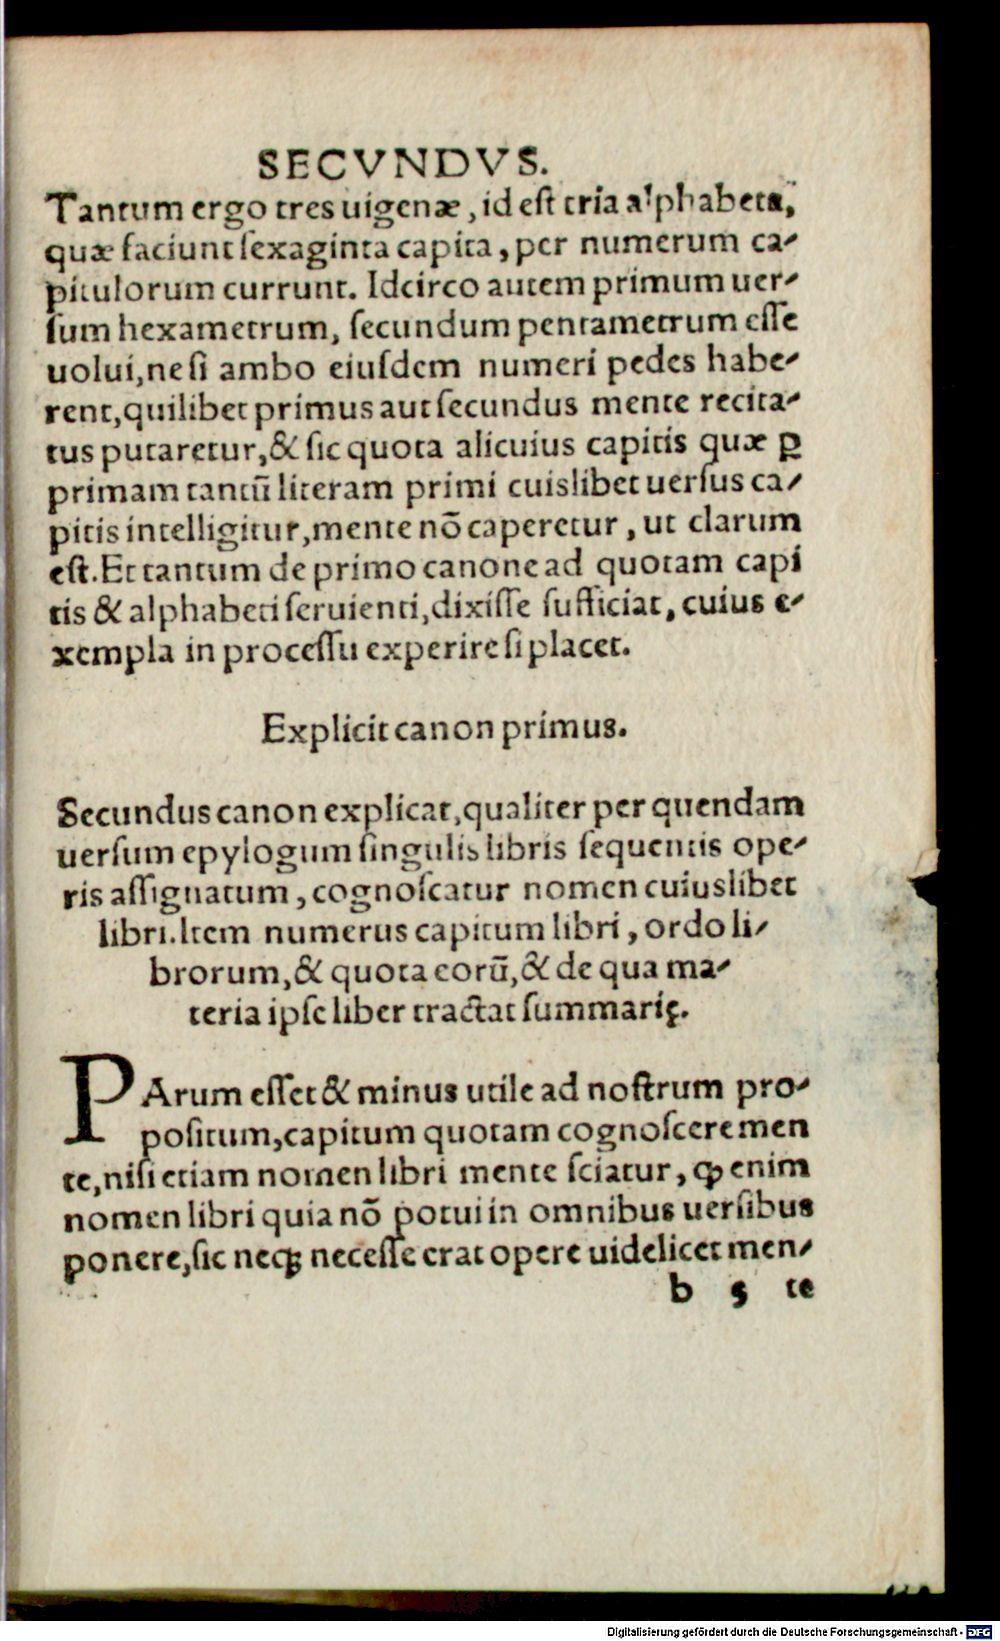 SECVNDVS.
Tantum ergo tres uigenæ, id est tria alphabeta,
quæ faciunt ſexaginta capita, per numerum ca-
pitulorum currunt. Idcirco autem primum uer-
ſum hexametrum, ſecundum pentametrum eſſe
uolui, ne ſi ambo eiuſdem numeri pedes habe-
rent, quilibet primus aut ſecundus mente recita-
tus putaretur, & ſic quota alicuius capitis quæ ꝑ
primam tantū literam primi cuislibet uerſus ca-
pitis intelligitur, mente nō caperetur, ut clarum
eſt. Et tantum de primo canone ad quotam capi
tis & alphabeti ſeruienti, dixiſſe ſufficiat, cuius e-
xempla in proceſſu experire ſi placet.
Explicit canon primus.
Secundus canon explicat, qualiter per quendam
uerſum epylogum ſingulis libris ſequentis ope-
ris aſſignatum, cognoſcatur nomen cuiuslibet
libri. Item numerus capitum libri, ordo li-
brorum, & quota eorū, & de qua ma-
teria ipſe liber tractat ſummarię.
PArum eſſet & minus utile ad noſtrum pro-
poſitum, capitum quotam cognoſcere men
te, niſi etiam nomen libri mente ſciatur, ꝙ enim
nomen libri quia nō potui in omnibus uerſibus
ponere, ſic neqꝫ neceſſe erat opere uidelicet men-
b 5 te
Digitalisierung gefördert durch die Deutsche Forschungsgemeinschaft - DFG